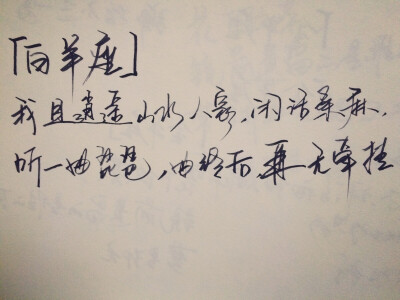 「白羊座」
我且逍遥山水人家,闲话桑麻,
听一曲琵琶,曲终后,再无牵挂